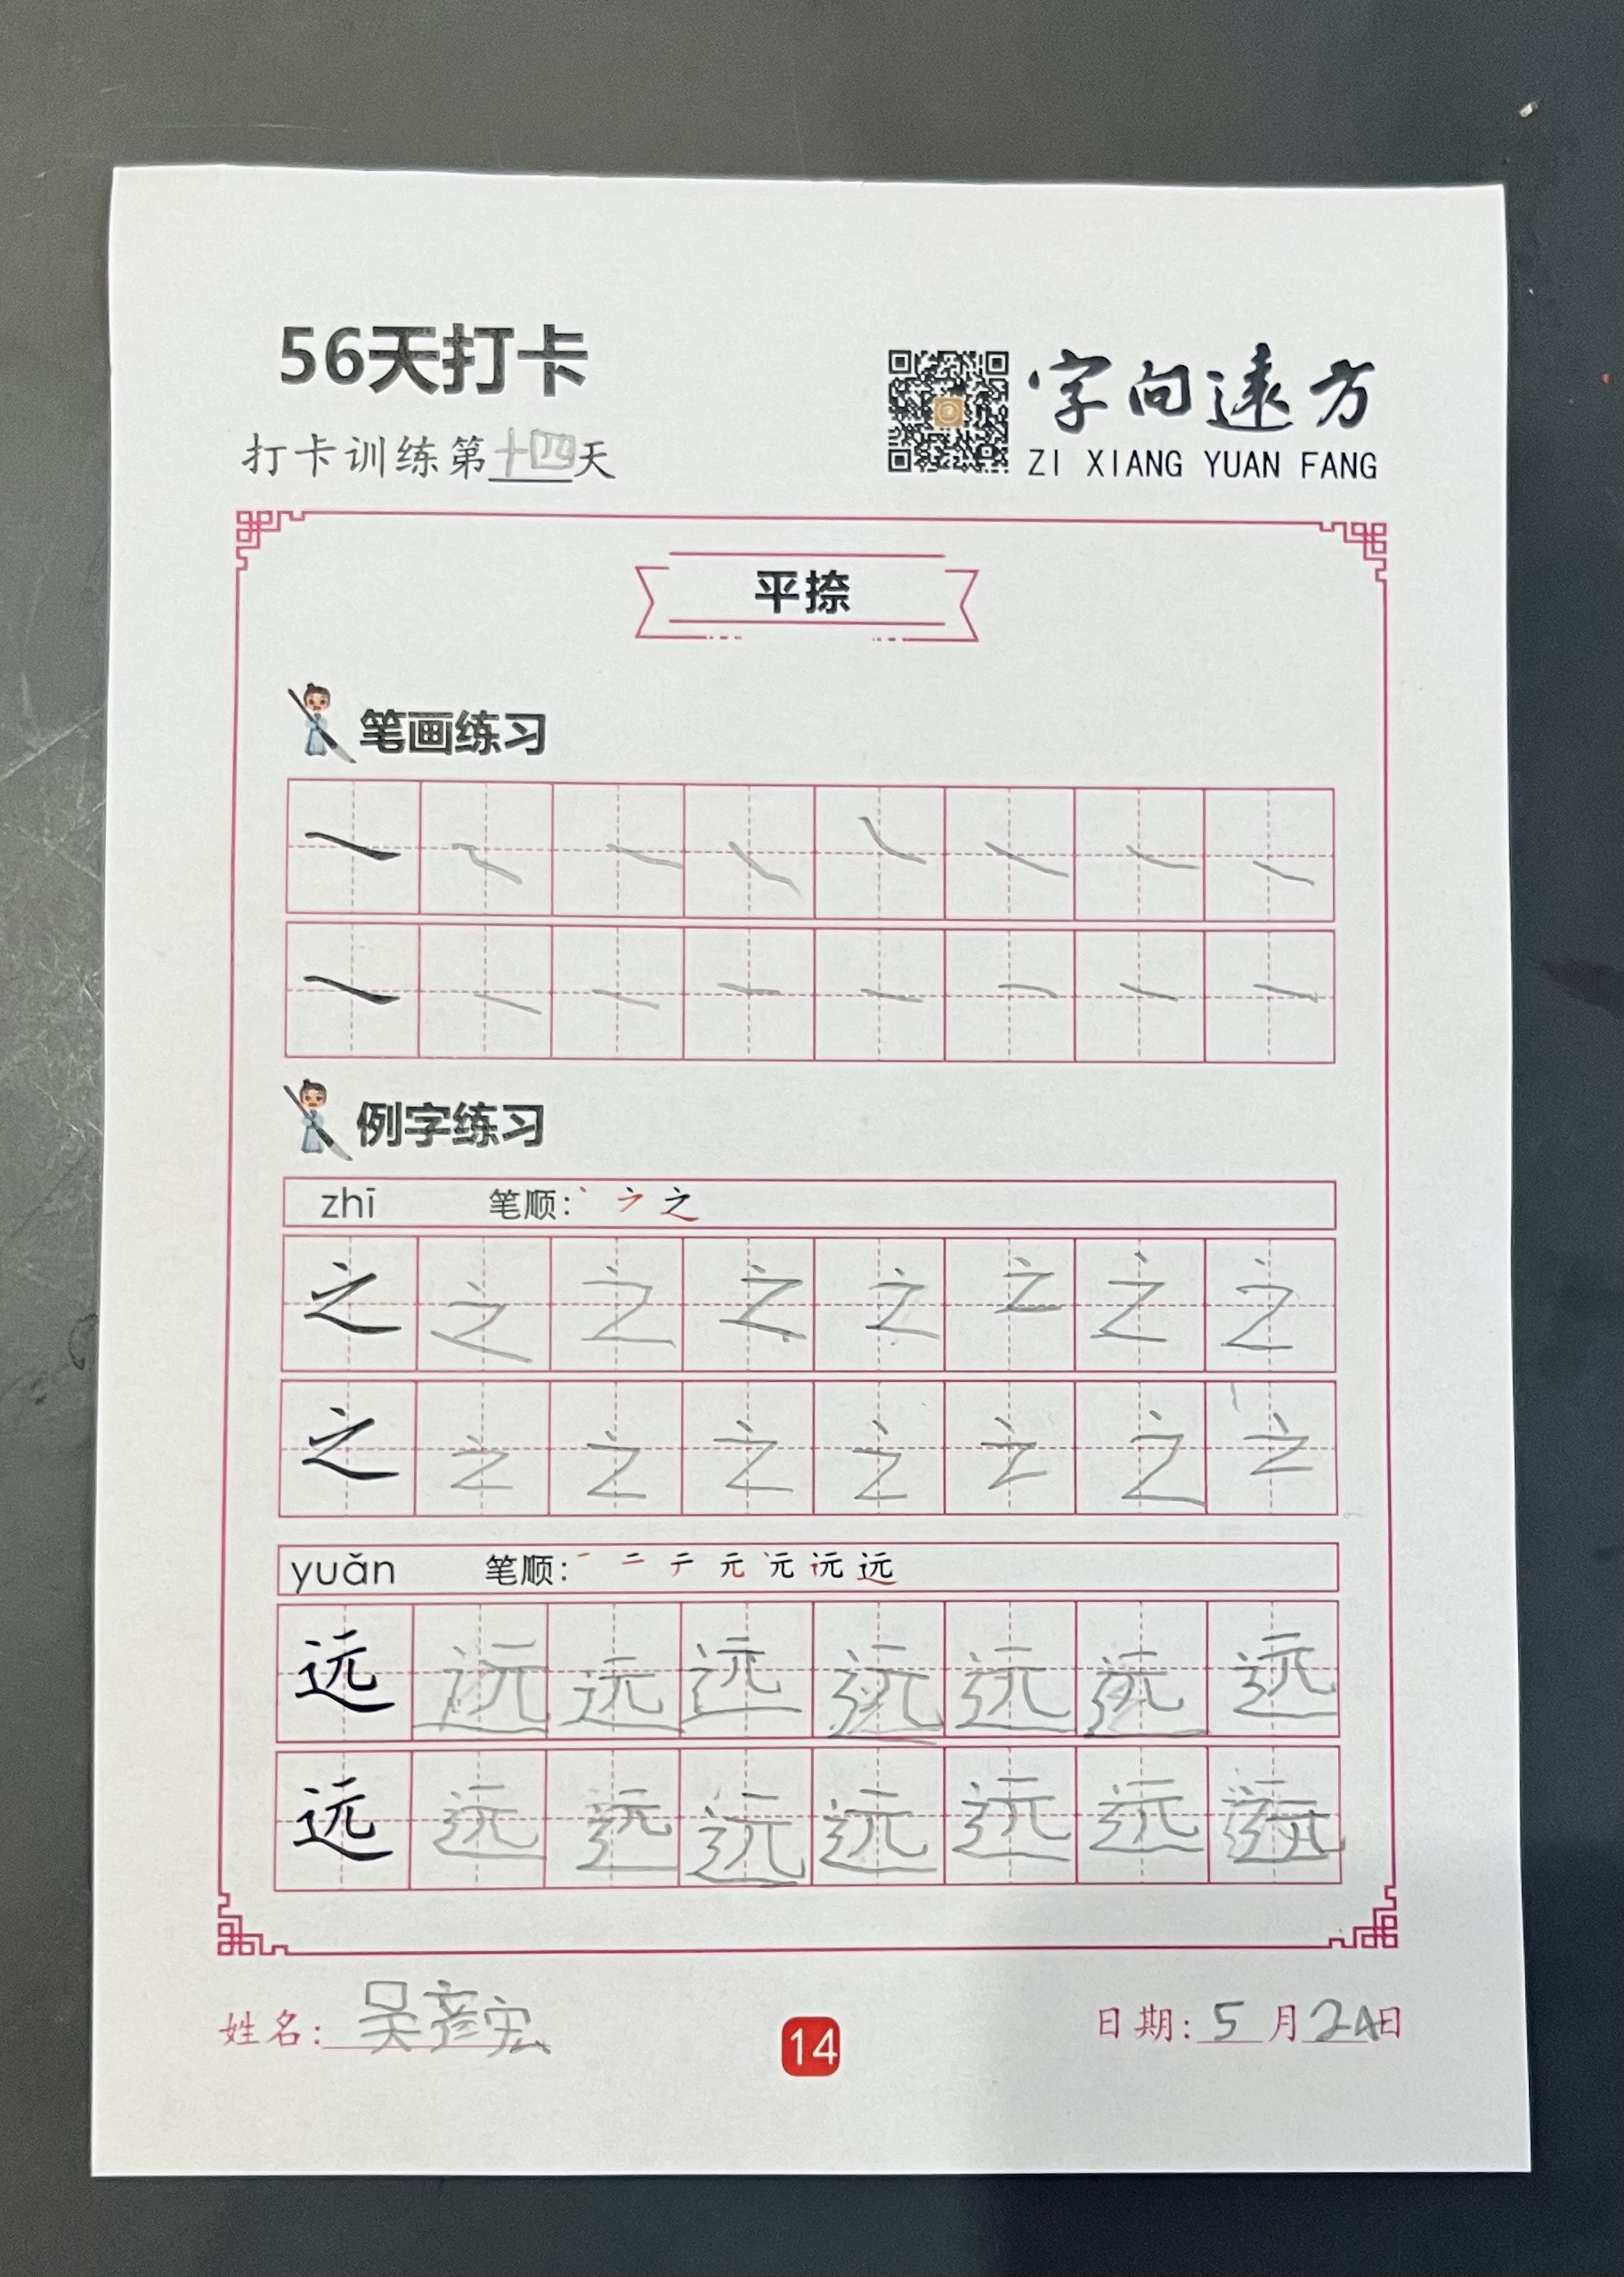 56天打卡
打卡训练第十四天
字向遠方
ZI XIANG YUAN FANG
平捺
笔画练习
例字练习
zhī 笔顺：
之 之 之 之 之 之 之 之
之 之 之 之 之 之 之 之
yuǎn 笔顺： 一 二 テ 元 远
远 远 远 远 远 远 远 远
远 远 远 远 远 远 远 远
姓名：吴彦宏
14
日期：5月24日